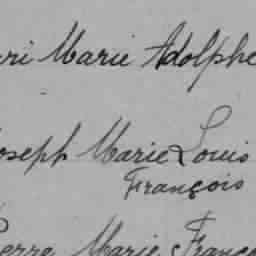 ri Marie Adolphe
oseph Marie Louis
François
ierre Marie Franço